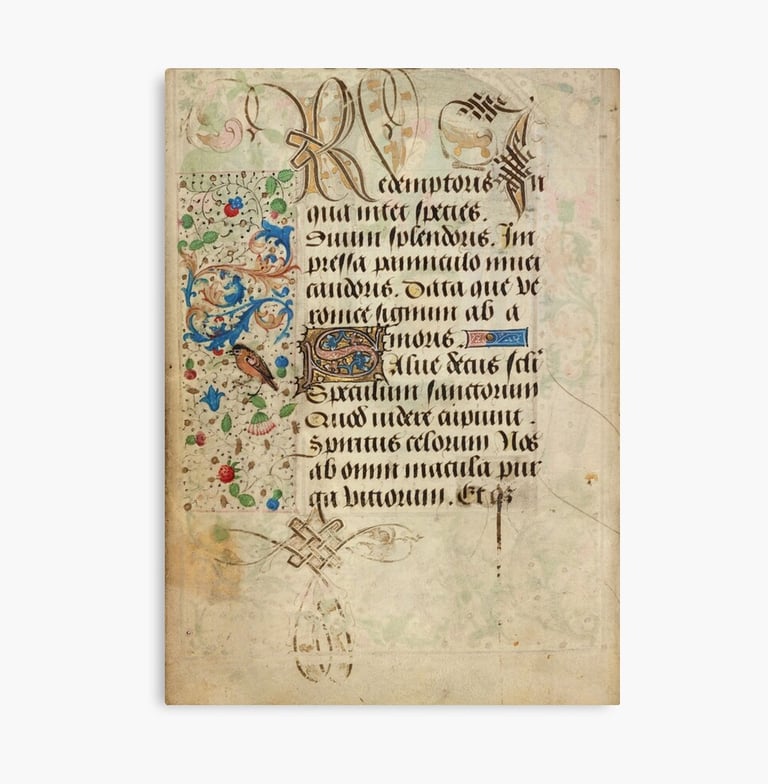 Redemptoris In
qua nitet species.
Sunin splendoris. Im
pressa panniculo niuei
candoris. Data que ve
ronice signum ab a
moris.
Salue decus scli
Speculum sanctorum
Quod uidere cupiunt.
Spiritus celorum Nos
ab omni macula pur
ga viciorum. Et